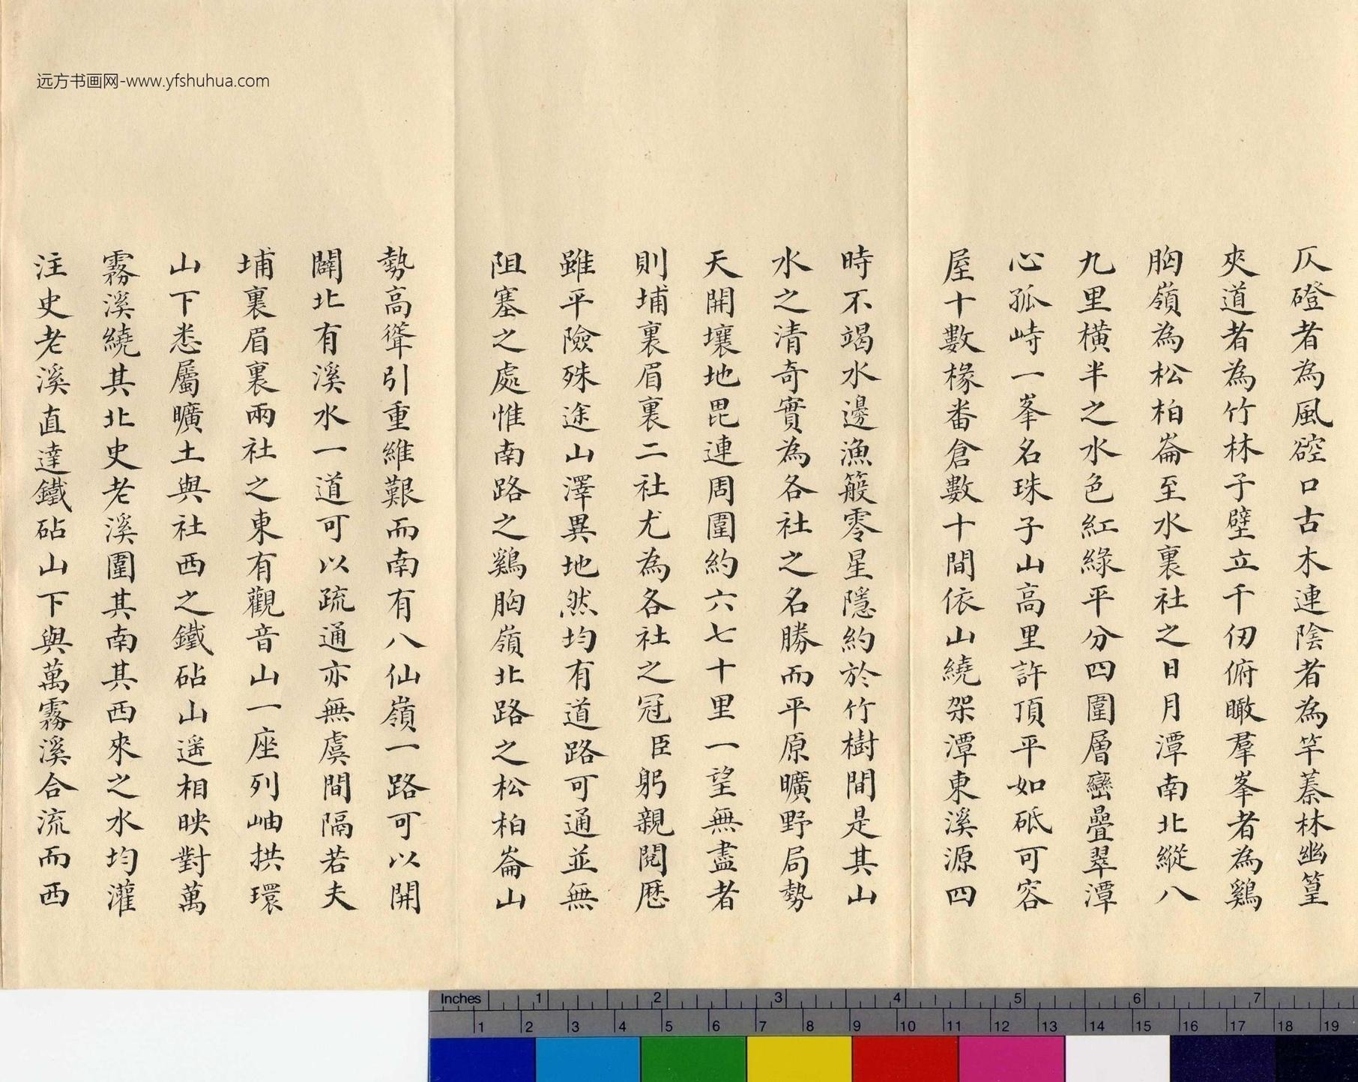 远方书画网-www.yfshuhua.com
仄磴者為風硿口古木連陰者為竿蓁林幽篁
夾道者為竹林子壁立千仞俯瞰羣峯者為鷄
胸嶺為松柏崙至水裏社之日月潭南北縱八
九里橫半之水色紅綠平分四圍層巒疊翠潭
心孤峙一峯名珠子山高里許頂平如砥可容
屋十數椽番倉數十間依山繞架潭東溪源四
時不竭水邊漁簰零星隱約於竹樹間是其山
水之清奇實為各社之名勝而平原曠野局勢
天開壤地毘連周圍約六七十里一望無盡者
則埔裏眉裏二社尤為各社之冠臣躬親閱歷
雖平險殊途山澤異地然均有道路可通並無
阻塞之處惟南路之鷄胸嶺北路之松柏崙山
勢高聳引重維艱而南有八仙嶺一路可以開
闢北有溪水一道可以疏通亦無虞間隔若夫
埔裏眉裏兩社之東有觀音山一座列岫拱環
山下悉屬曠土與社西之鐵砧山遥相映對萬
霧溪繞其北史老溪圍其南其西來之水均灌
注史老溪直達鐵砧山下與萬霧溪合流而西
Inches 1 2 3 4 5 6 7
1 2 3 4 5 6 7 8 9 10 11 12 13 14 15 16 17 18 19